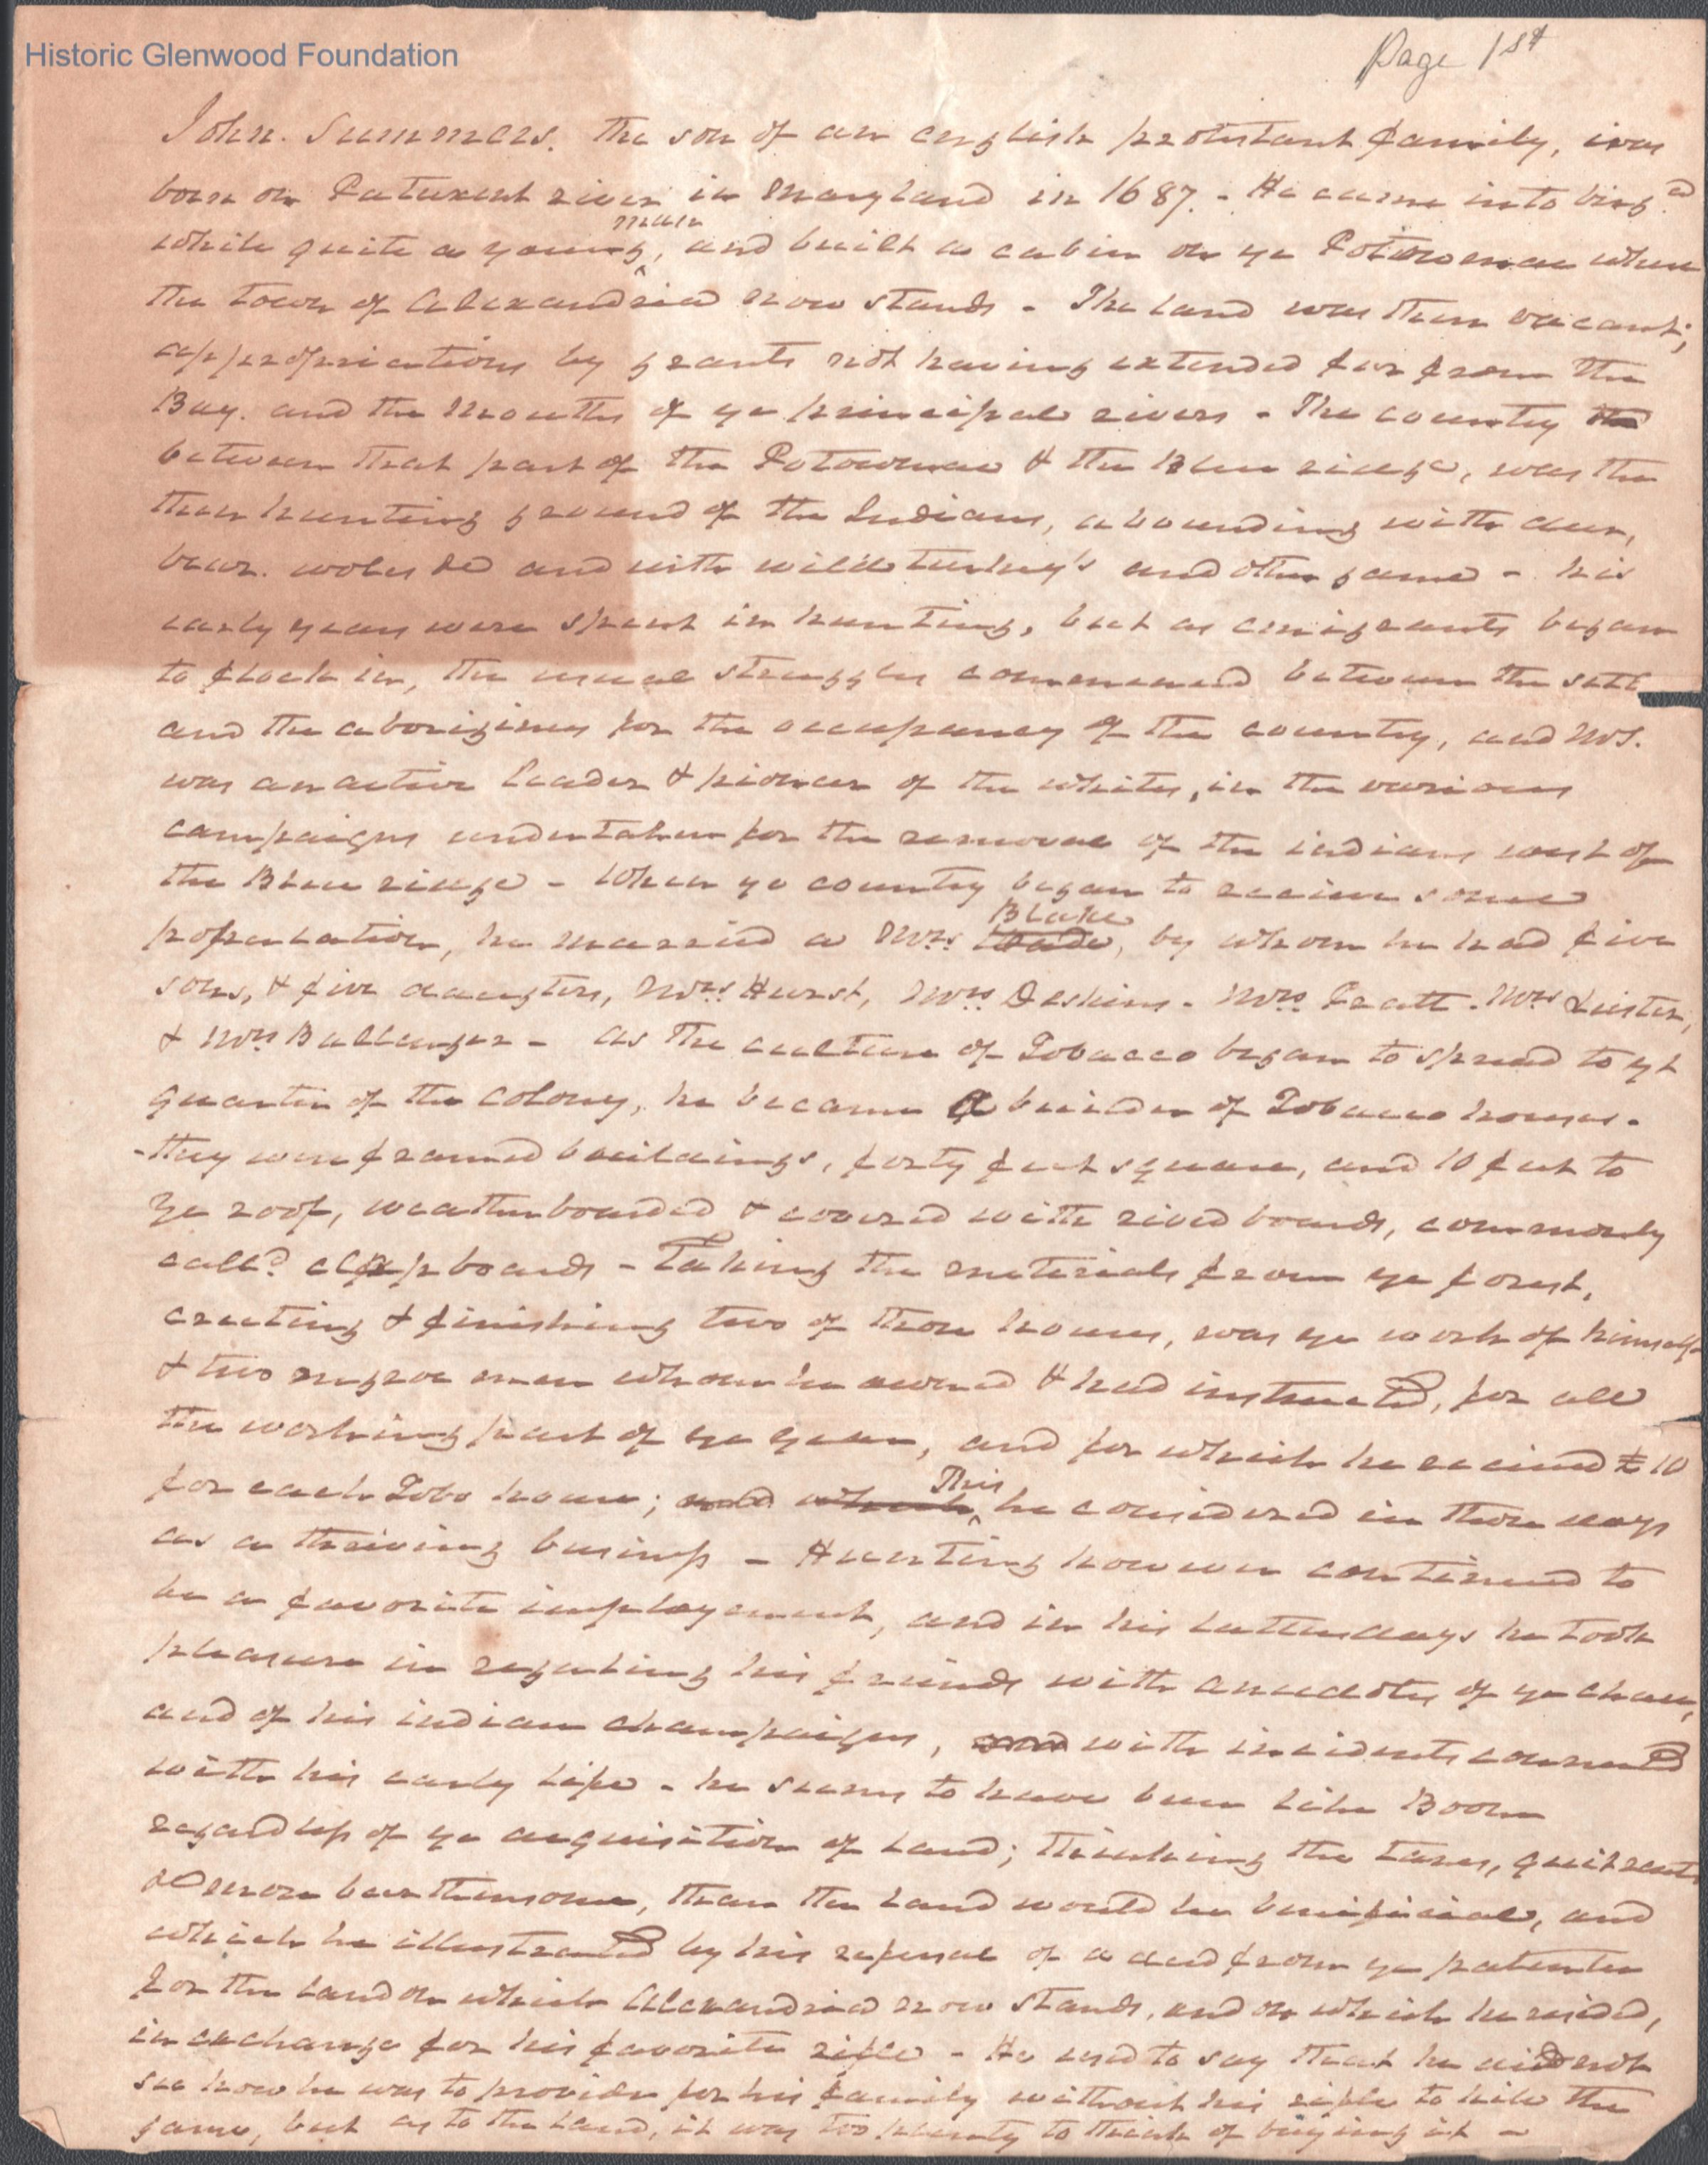 Historic Glenwood Foundation
Page 1st
John. Summers. The son of an english protestant family, was
born on Patuxent river in Maryland in 1687. - He came into Virg.a
while quite a young man, and built a cabin on ye Potowmac where
the town of Alexandria now stands - The land was then vacant;
appropriations by grants not having extended far from the
Bay. and the mouths of ye principal rivers - The country the
between that part of the Potowmac & the Blue ridge, was the
then hunting ground of the Indians, abounding with deer,
bear. wolves &c and with wild turkey's and other game - his
early years were spent in hunting, but as emigrants began
to flock in, the usual struggles commenced between the sett
and the aborigines for the occupancy of the country, and Mr S.
was an active leader & pioneer of the whites, in the various
campaigns undertaken for the removal of the indians west of
the Blue ridge - When ye country began to receive some
population, he married a Mrs Blake, by whom he had five
sons, & five daugters, Mrs Hurst, Mrs Deskins - Mrs Pratt - Mrs Linster,
& Mrs Ballenger - As the culture of Tobacco began to spread to yt
quarter of the colony, he became a builder of Tobacco houses -
- they were framed buildings, forty feet square, and 10 feet to
ye roof, weatherboarded & covered with rived boards, commonly
call'd clapboards - Taking the materials from ye forest,
erecting & finishing two of those houses, was ye work of himself
& two negroe men whom he owned & had instructed, for all
the working part of ye year, and for which he received £ 10
for each Tobo house; and which This he considered in those days
as a thriving business - Hunting however continued to
be a favorite employment, and in his latter days he took
pleasure in regaling his friends with anecdotes of ye chase,
and of his indian champaigns, and with incidents connected
with his early life - he seems to have been like Boone
regardless of ye acquisition of land; thinking the taxes, quitrents
&c more burthensome, than the land would be benificial, and
which he illustrated by his refusal of a deed from ye patentee
for the land on which Alexandria now stands, and on which he resided,
in exchange for his favorite rifle - He used to say that he did not
see how he was to provide for his family without his rifle to kill the
game, but as to the land, it was too plenty to think of buying it -